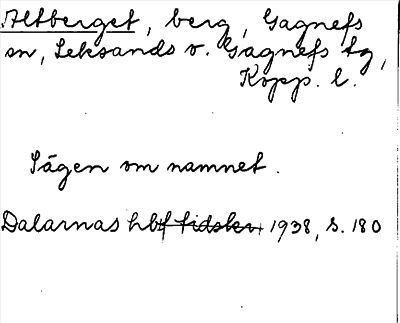 Altberget, berg, Gagnefs
sn, Leksands o. Gagnefs tg,
Kopp. l.
Sägen om namnet.
Dalarnas hbf tidskr. 1938, s. 180